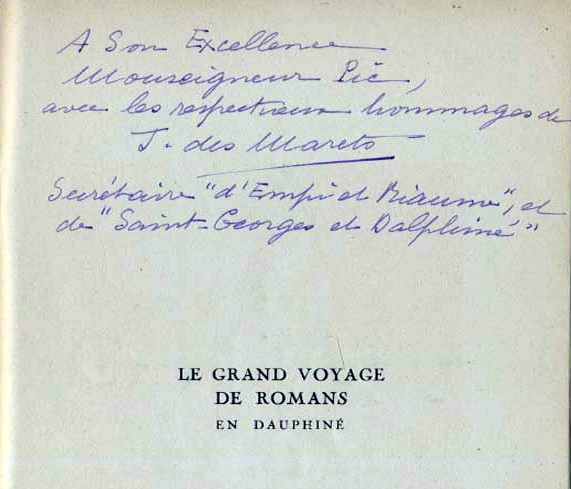 A Son Excellence
Monseigneur Pic,
avec les respectueux hommages de
J. des Marets
Secrétaire "d'Empi et Riaume", et
de "Saint-Georges et Dalphiné"
LE GRAND VOYAGE
DE ROMANS
EN DAUPHINÉ